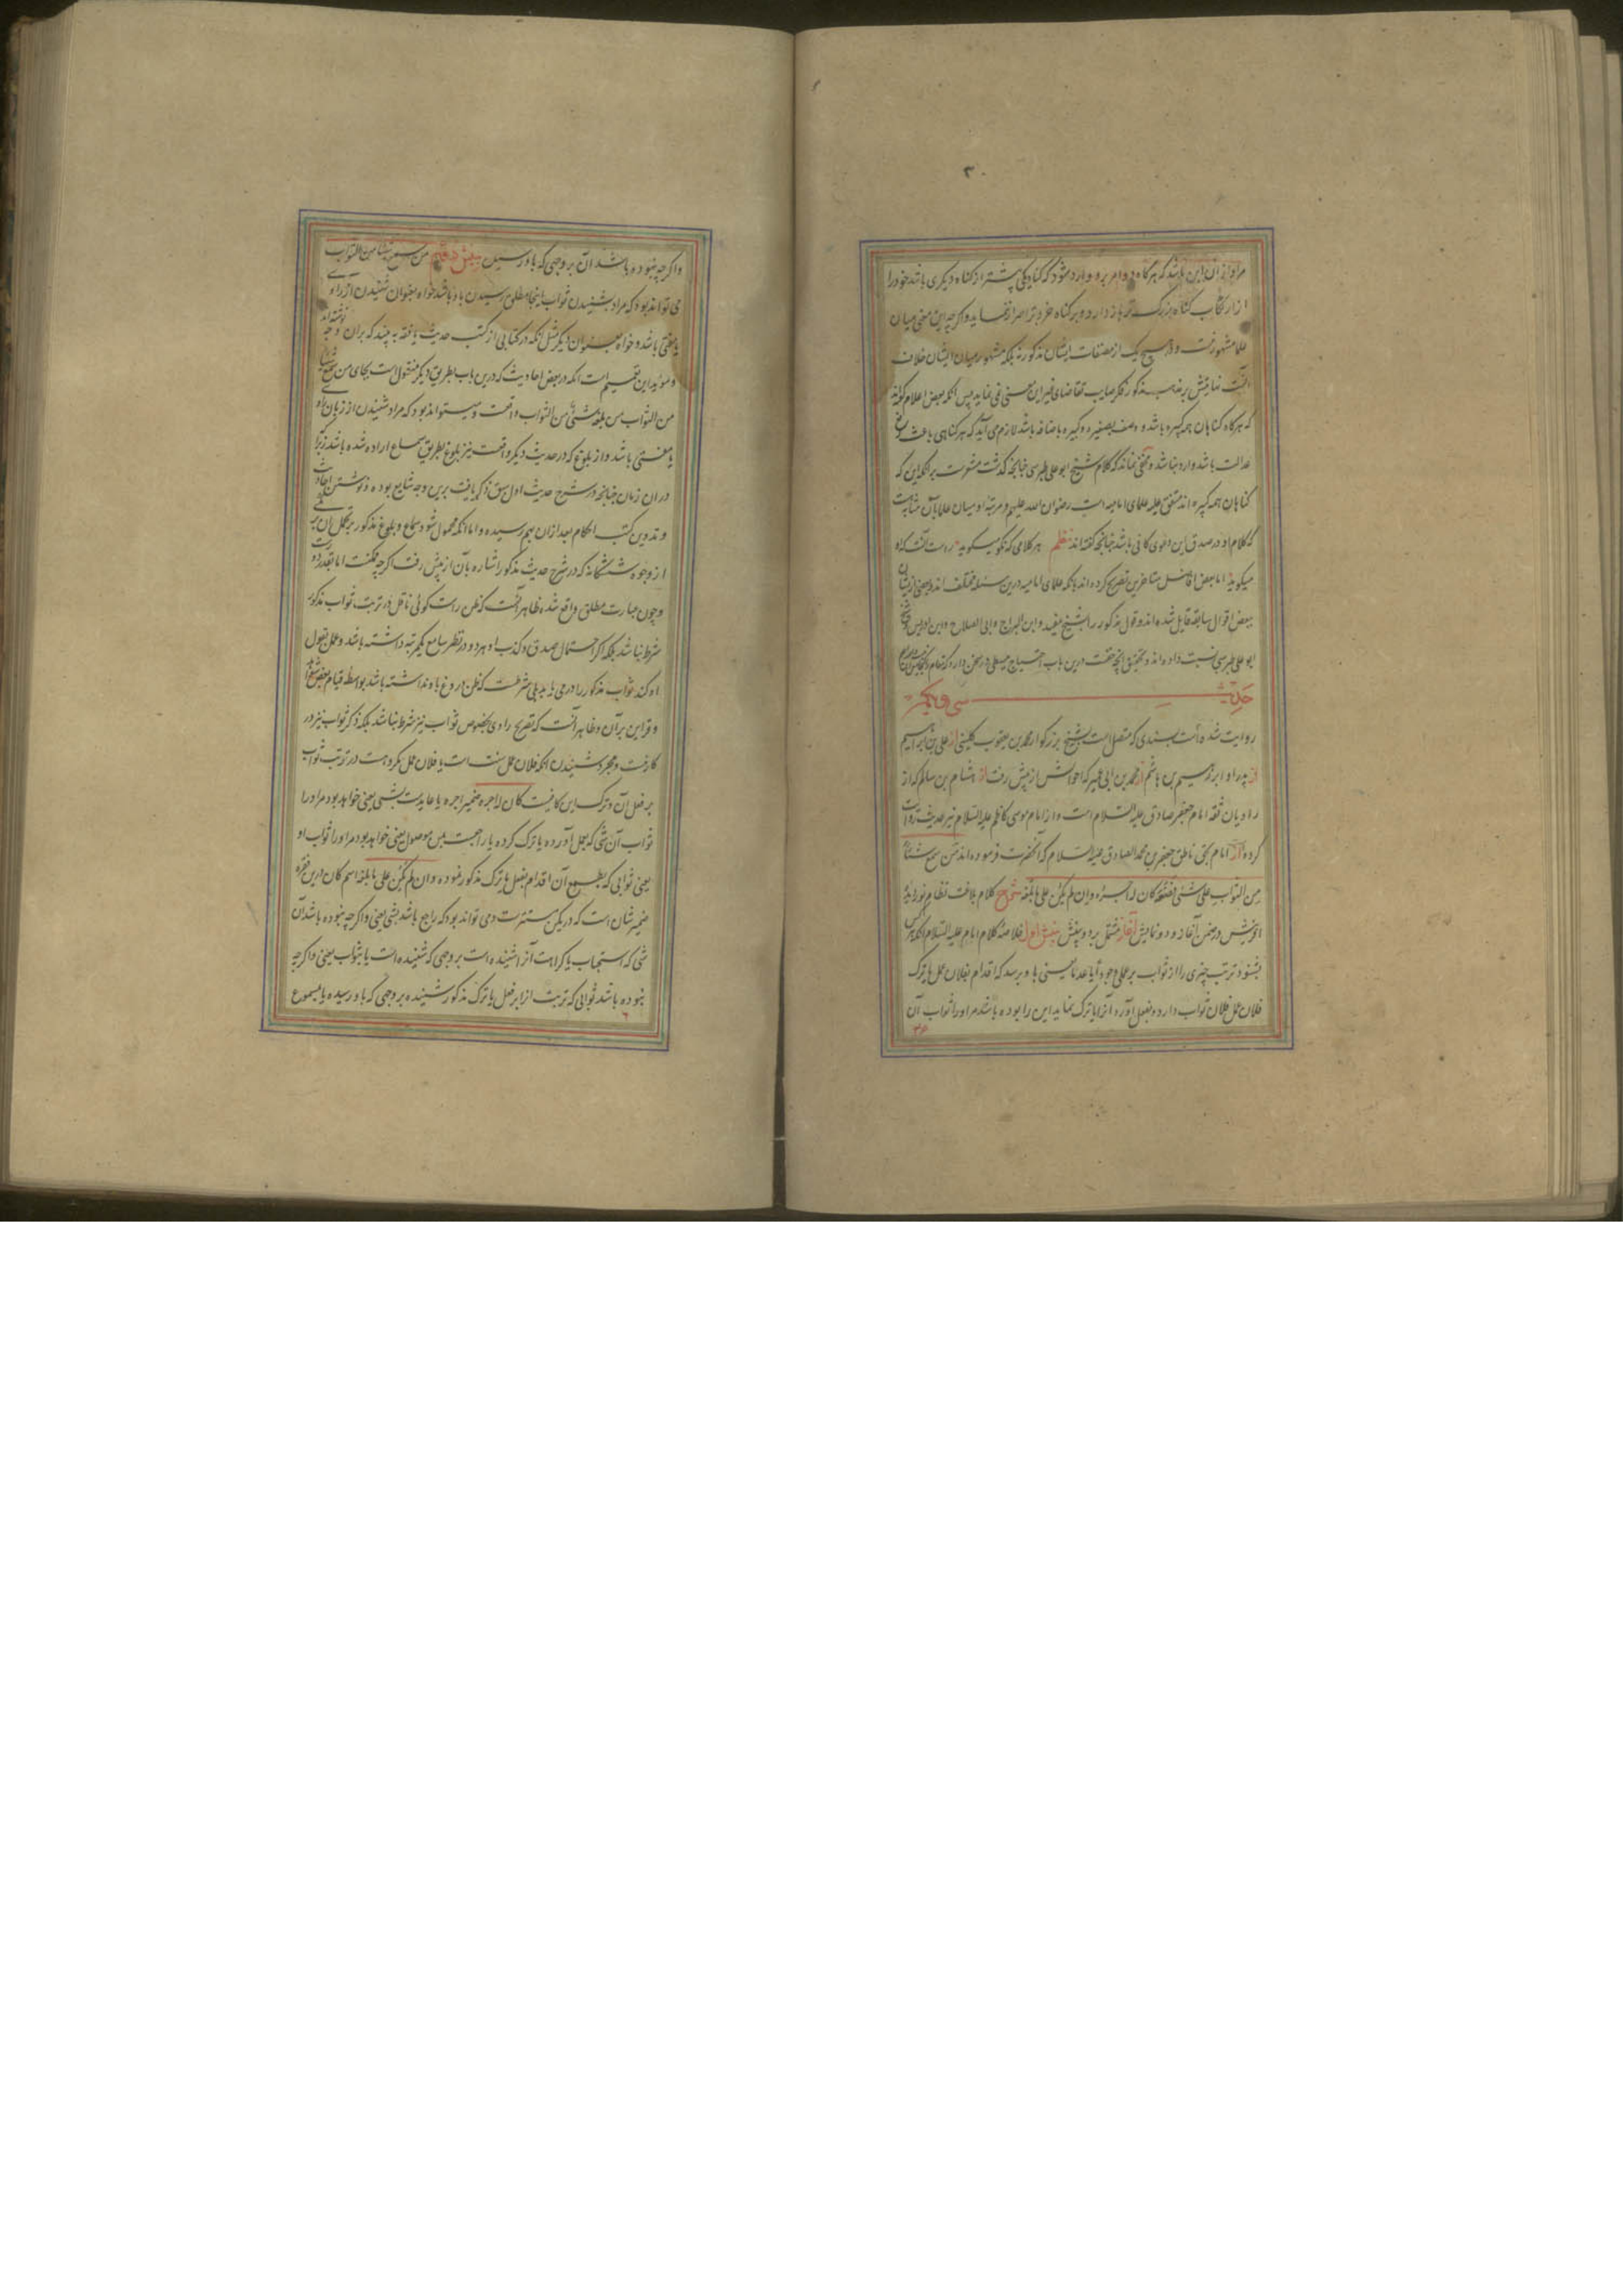 مراد از ان این باشد که هرگاه دو امر برو وارد شود که گناه یکی بیشتر از گناه دیگری باشد خود را
از ارتکاب گناه بزرگ تر باز دارد و بر گناه خردتر اصرار ننماید و اگرچه این معنی میان
علما مشهور نیست و در هیچ یک از مصنفات ایشان مذکور نه بلکه مشهور میان ایشان خلاف
انست نمایش بر مذهب مذکور فکر صایب تقاضای غیر این معنی نمی نماید پس انکه بعض اعلام گفته
که هرگاه گناهان همه کبیره باشد و وصف بصغیره و کبیره باضافه باشد لازم می آید که هر گناهی باعث رفع
عدالت باشد وارد نباشد و مخفی نماند که کلام شیخ ابو علی طبرسی چنانچه گذشت مشعرست بر انکه این که
گناهان همه کبیره اند متفق علیه علمای امامیه است رضوان الله علیهم و مرتبه او میان علما بآن مثابه است
که کلام او در صدق این دعوی کافی باشد چنانچه گفته اند نظم هر کلامی که نکو میگوید راست آنست که او
میگوید اما بعض افاضل متاخرین تصریح کرده اند بانکه علمای امامیه درین مسئله مختلف اند و بعضی از ایشان
ببعض اقوال سابقه قایل شده اند و قول مذکور را بشیخ مفید و ابن البراج و ابی الصلاح و ابن ادریس و شیخ
ابو علی طبرسی نسبت داده اند و تحقیق انچه حقست درین باب احتیاج ببسطی در سخن دارد که مقام
حدیث سی و یکم
روایت شده است بسندی که متصل است بشیخ بزرگوار محمد بن یعقوب کلینی از علی بن ابراهیم
از پدر او ابراهیم بن هاشم از محمد بن ابی عمیر که احوالش از پیش رفت از هشام بن سالم که از
راویان ثقه امام جعفر صادق علیه السلام است و از امام موسی کاظم علیه السلام نیز حدیث روایت
کرده از امام بحق ناطق جعفر بن محمد الصادق علیه السلام که آنحضرت فرموده اند من سمع شیئا
من الثواب علی شئی فصنعه کان له اجره و ان لم یکن علی ما بلغه شرح کلام بلاغت نظام نورانیة
در ضمن آغاز و دو نمایش آغاز مشتمل بر دو بینش بینش اول خلاصه کلام امام علیه السلام انکه هر کس
بشنود ترتب چیزی را از ثواب بر عملی وجود آیا عدما یعنی باو برسد که اقدام بفلان عمل یا ترک
فلان عمل فلان ثواب دارد و بفعل آورد آنرا یا ترک نماید این را بوده باشد مر او را ثواب آن
و اگرچه نبوده باشد آن بر وجهی که باو رسید بینش دویم من سمع شیئا من الثواب
می تواند بود که مراد بشنیدن ثواب اینجا مطلق رسیدن باو باشد خواه بعنوان شنیدن از راوی
یا مفتی باشد و خواه بعنوان دیگر مثل انکه در کتابی از کتب حدیث یافته به بیند که بران وجه نوشته اند
و موید این تعمیم است انکه در بعض احادیث که درین باب بطریق دیگر منقول است بجای من سمع شیئا
من الثواب من بلغه شئ من الثواب واقعست و میتواند بود که مراد شنیدن از زبان راوی
یا مفتی باشد و از بلوغ که در حدیث دیگر واقعست نیز بلوغ بطریق سماع اراده شده باشد زیرا
در ان زمان چنانچه در شرح حدیث اول سبق ذکر یافت برین وجه شایع بوده و نوشتن احادیث
و تدوین کتب احکام بعد از ان بهم رسیده و اما انکه محمول شود سماع و بلوغ مذکور بر تحمل ان بر
از وجوه ششگانه که در شرح حدیث مذکور اشاره بآن از پیش رفت اگرچه ممکنست اما
و چون عبارت مطلق واقع شده ظاهر آنست که ظن راست گوئی ناقل در ترتب ثواب مذکور
شرط نباشد بلکه اگر احتمال صدق و کذب او هر دو در نظر سامع یکمرتبه داشته باشد و عمل بقول
او کند ثواب مذکور را در می یابد بلی شرطست که ظن دروغ باو نداشته باشد بواسطه قیام
و قراین بر آن و ظاهر آنست که تصریح راوی بخصوص ثواب نیز شرط نباشد بلکه ذکر ثواب نیز در
کار نیست و مجرد شنیدن انکه فلان عمل سنت است یا فلان عمل مکروه است در ترتب ثواب
بر فعل آن و ترک این کافیست کان له اجره ضمیر اجره یا عایدست بشئی یعنی خواهد بود مر او را
ثواب آن شی که بعمل آورده یا ترک کرده یا راجعست بمن موصول یعنی خواهد بود مر او را ثواب او
یعنی ثوابی که بطمع آن اقدام بفعل یا ترک مذکور نموده و ان لم یکن علی ما بلغه اسم کان درین فقره
ضمیر شان است که در یکن مستترست و می تواند بود که راجع باشد بشئی یعنی و اگرچه نبوده باشد آن
شی که استحباب یا کراهت آنرا شنیده است بر وجهی که شنیده است یا بثواب یعنی و اگرچه
نبوده باشد ثوابی که ترتب آنرا بر فعل یا ترک مذکور شنیده بر وجهی که باو رسیده یا بمسموع